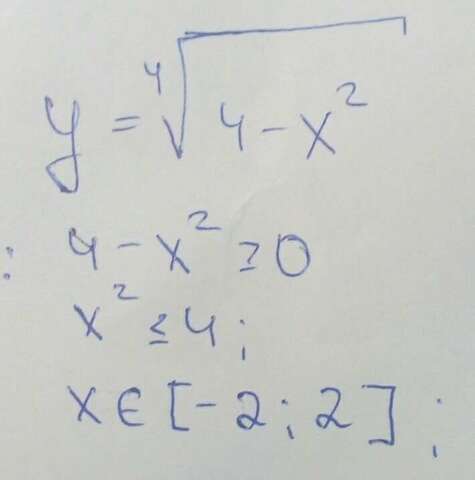 y = ⁴√(4 - x²)
: 4 - x² ≥ 0
x² ≤ 4;
x ∈ [-2; 2];